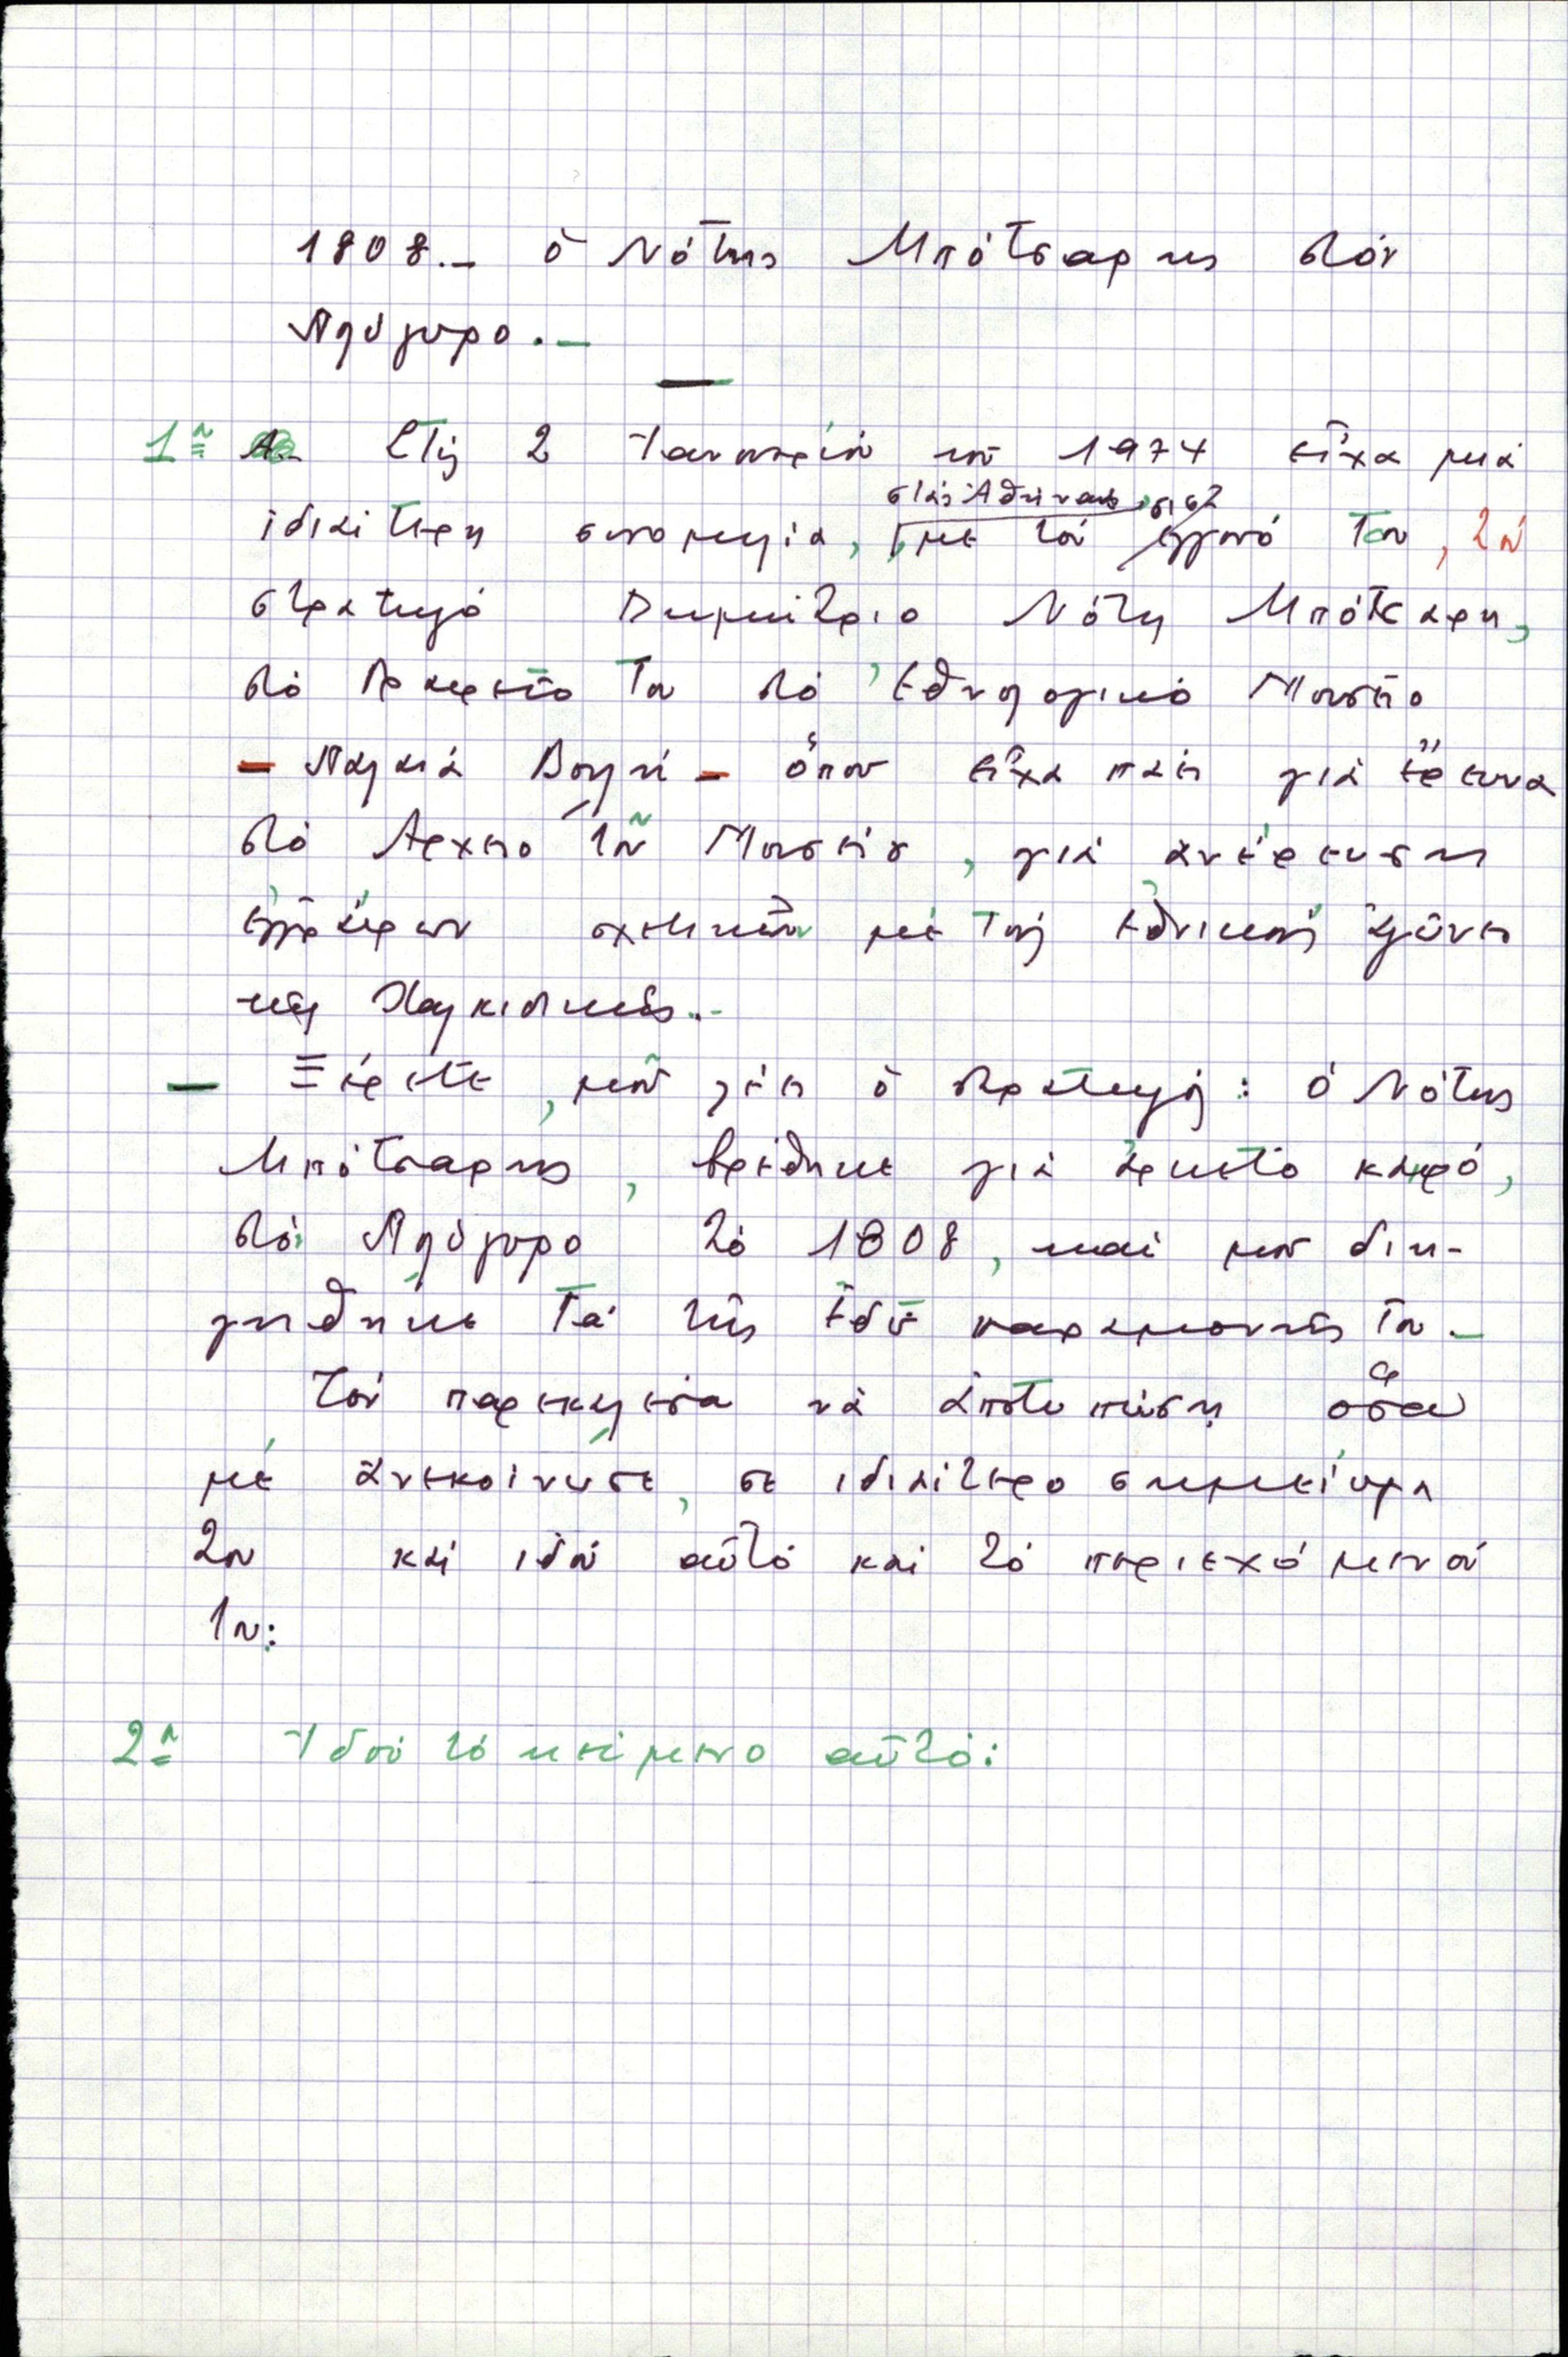 1808.- ὁ Νότης Μπότσαρης στόν
Πολύγυρο.-
1ον Στίς 2 Ἰανουαρίου τοῦ 1974 εἶχα μιά
ἰδιαίτερη συνομιλία, στάς Ἀθήνας, μέ τόν ἐγγονό του, τόν
στρατηγό Δημήτριο Νότη Μπότσαρη,
στό Γραφεῖο του στό Ἐθνολογικό Μουσεῖο
- Παλαιά Βουλή - ὅπου εἶχα πάει γιά ἔρευνα
στό Ἀρχεῖο τοῦ Μουσείου, γιά ἀνέρευση
ἐγγράφων σχετικῶν μέ τούς ἐθνικούς ἀγῶνες
τῆς Χαλκιδικῆς.-
- Ξέρετε, μοῦ λέει ὁ στρατηγός: ὁ Νότης
Μπότσαρης, βρέθηκε γιά ἀρκετό καιρό,
στόν Πολύγυρο τό 1808, καί μου διη-
γήθηκε τά τῆς ἐδῶ παραμονῆς του -
Τόν παρεκάλεσα νά ἀποτυπώση ὅσα
μέ ἀνεκοίνωσε, σέ ἰδιαίτερο σημείωμά
του καί ἰδού αὐτό καί τό περιεχόμενό
του:
2ον Ἰδού τό κείμενο αὐτό: